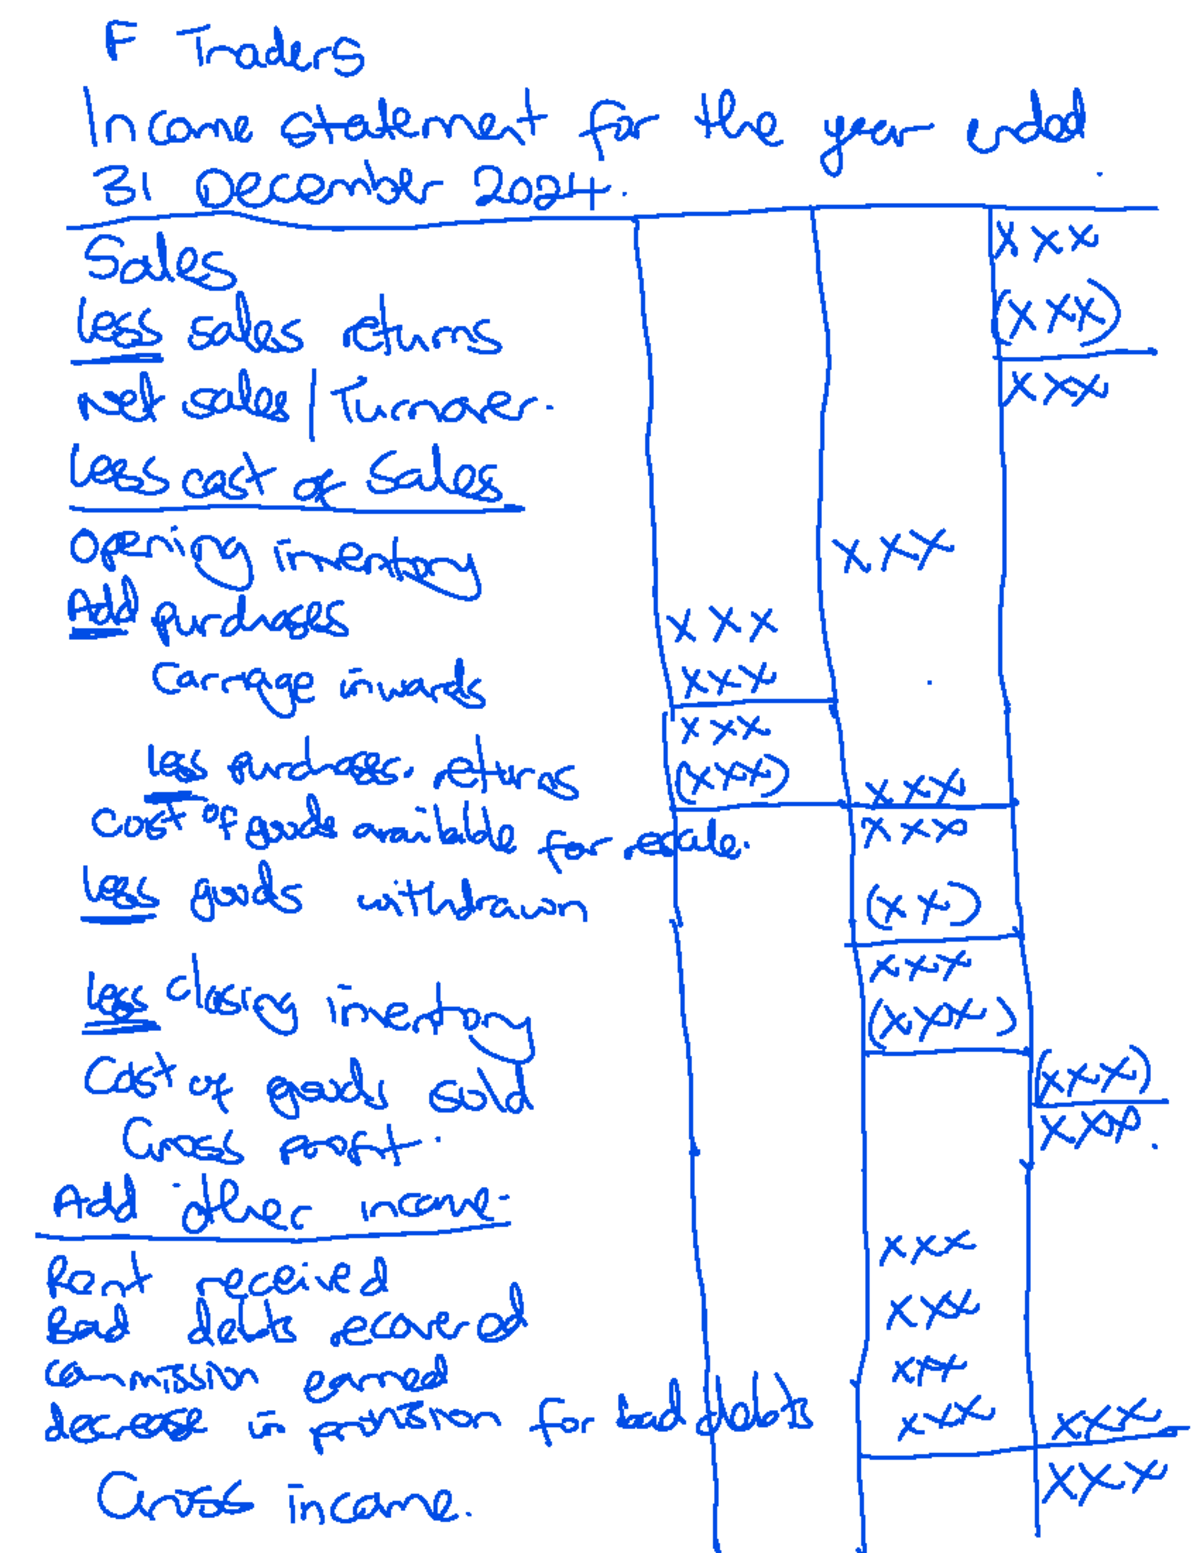 F Traders
Income statement for the year ended
31 December 2024.
Sales xxx
Less sales returns (xxx)
Net sales/Turnover. xxx
Less cost of Sales
Opening inventory xxx
Add purchases xxx
Carriage inwards xxx
xxx
Less purchases. returns (xxx) xxx
Cost of goods available for resale. xxx
Less goods withdrawn (xx)
xxx
Less closing inventory (xxx)
Cost of goods sold (xxx)
Gross profit. xxx.
Add other income
Rent received xxx
Bad debts recovered xxx
commission earned xxx
decrease in provision for bad debts xxx xxx
Gross income. xxx